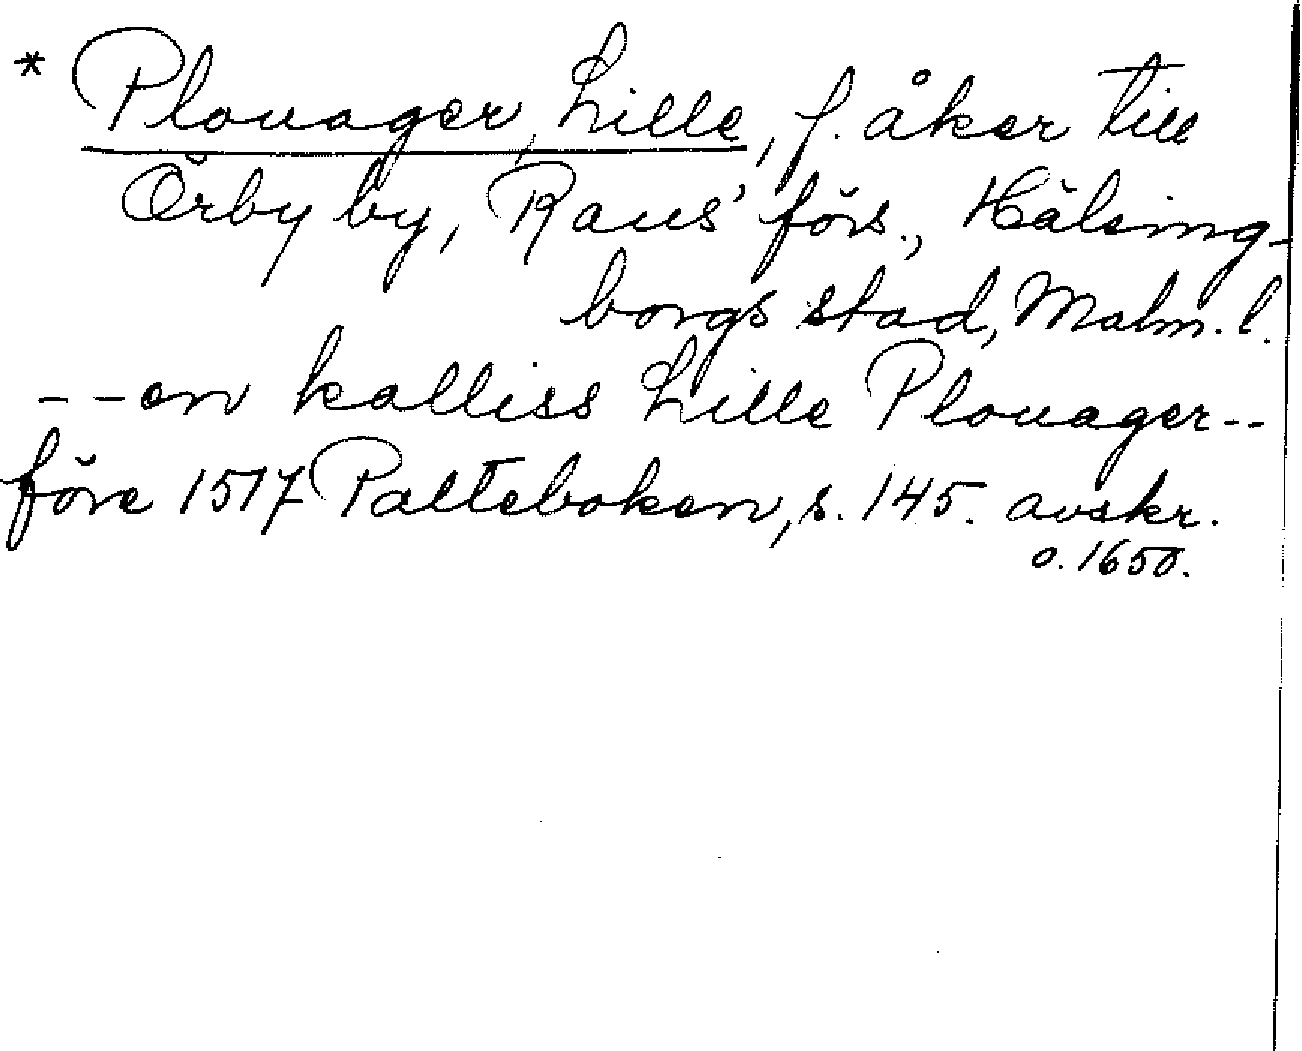 * Plouager, Lille, f. åker till
Örby by, Raus' förs., Hälsing-
borgs stad, Malm. l.
--en kalliss Lille Plouager--
före 1517 Palteboken, s. 145. avskr.
o. 1650.